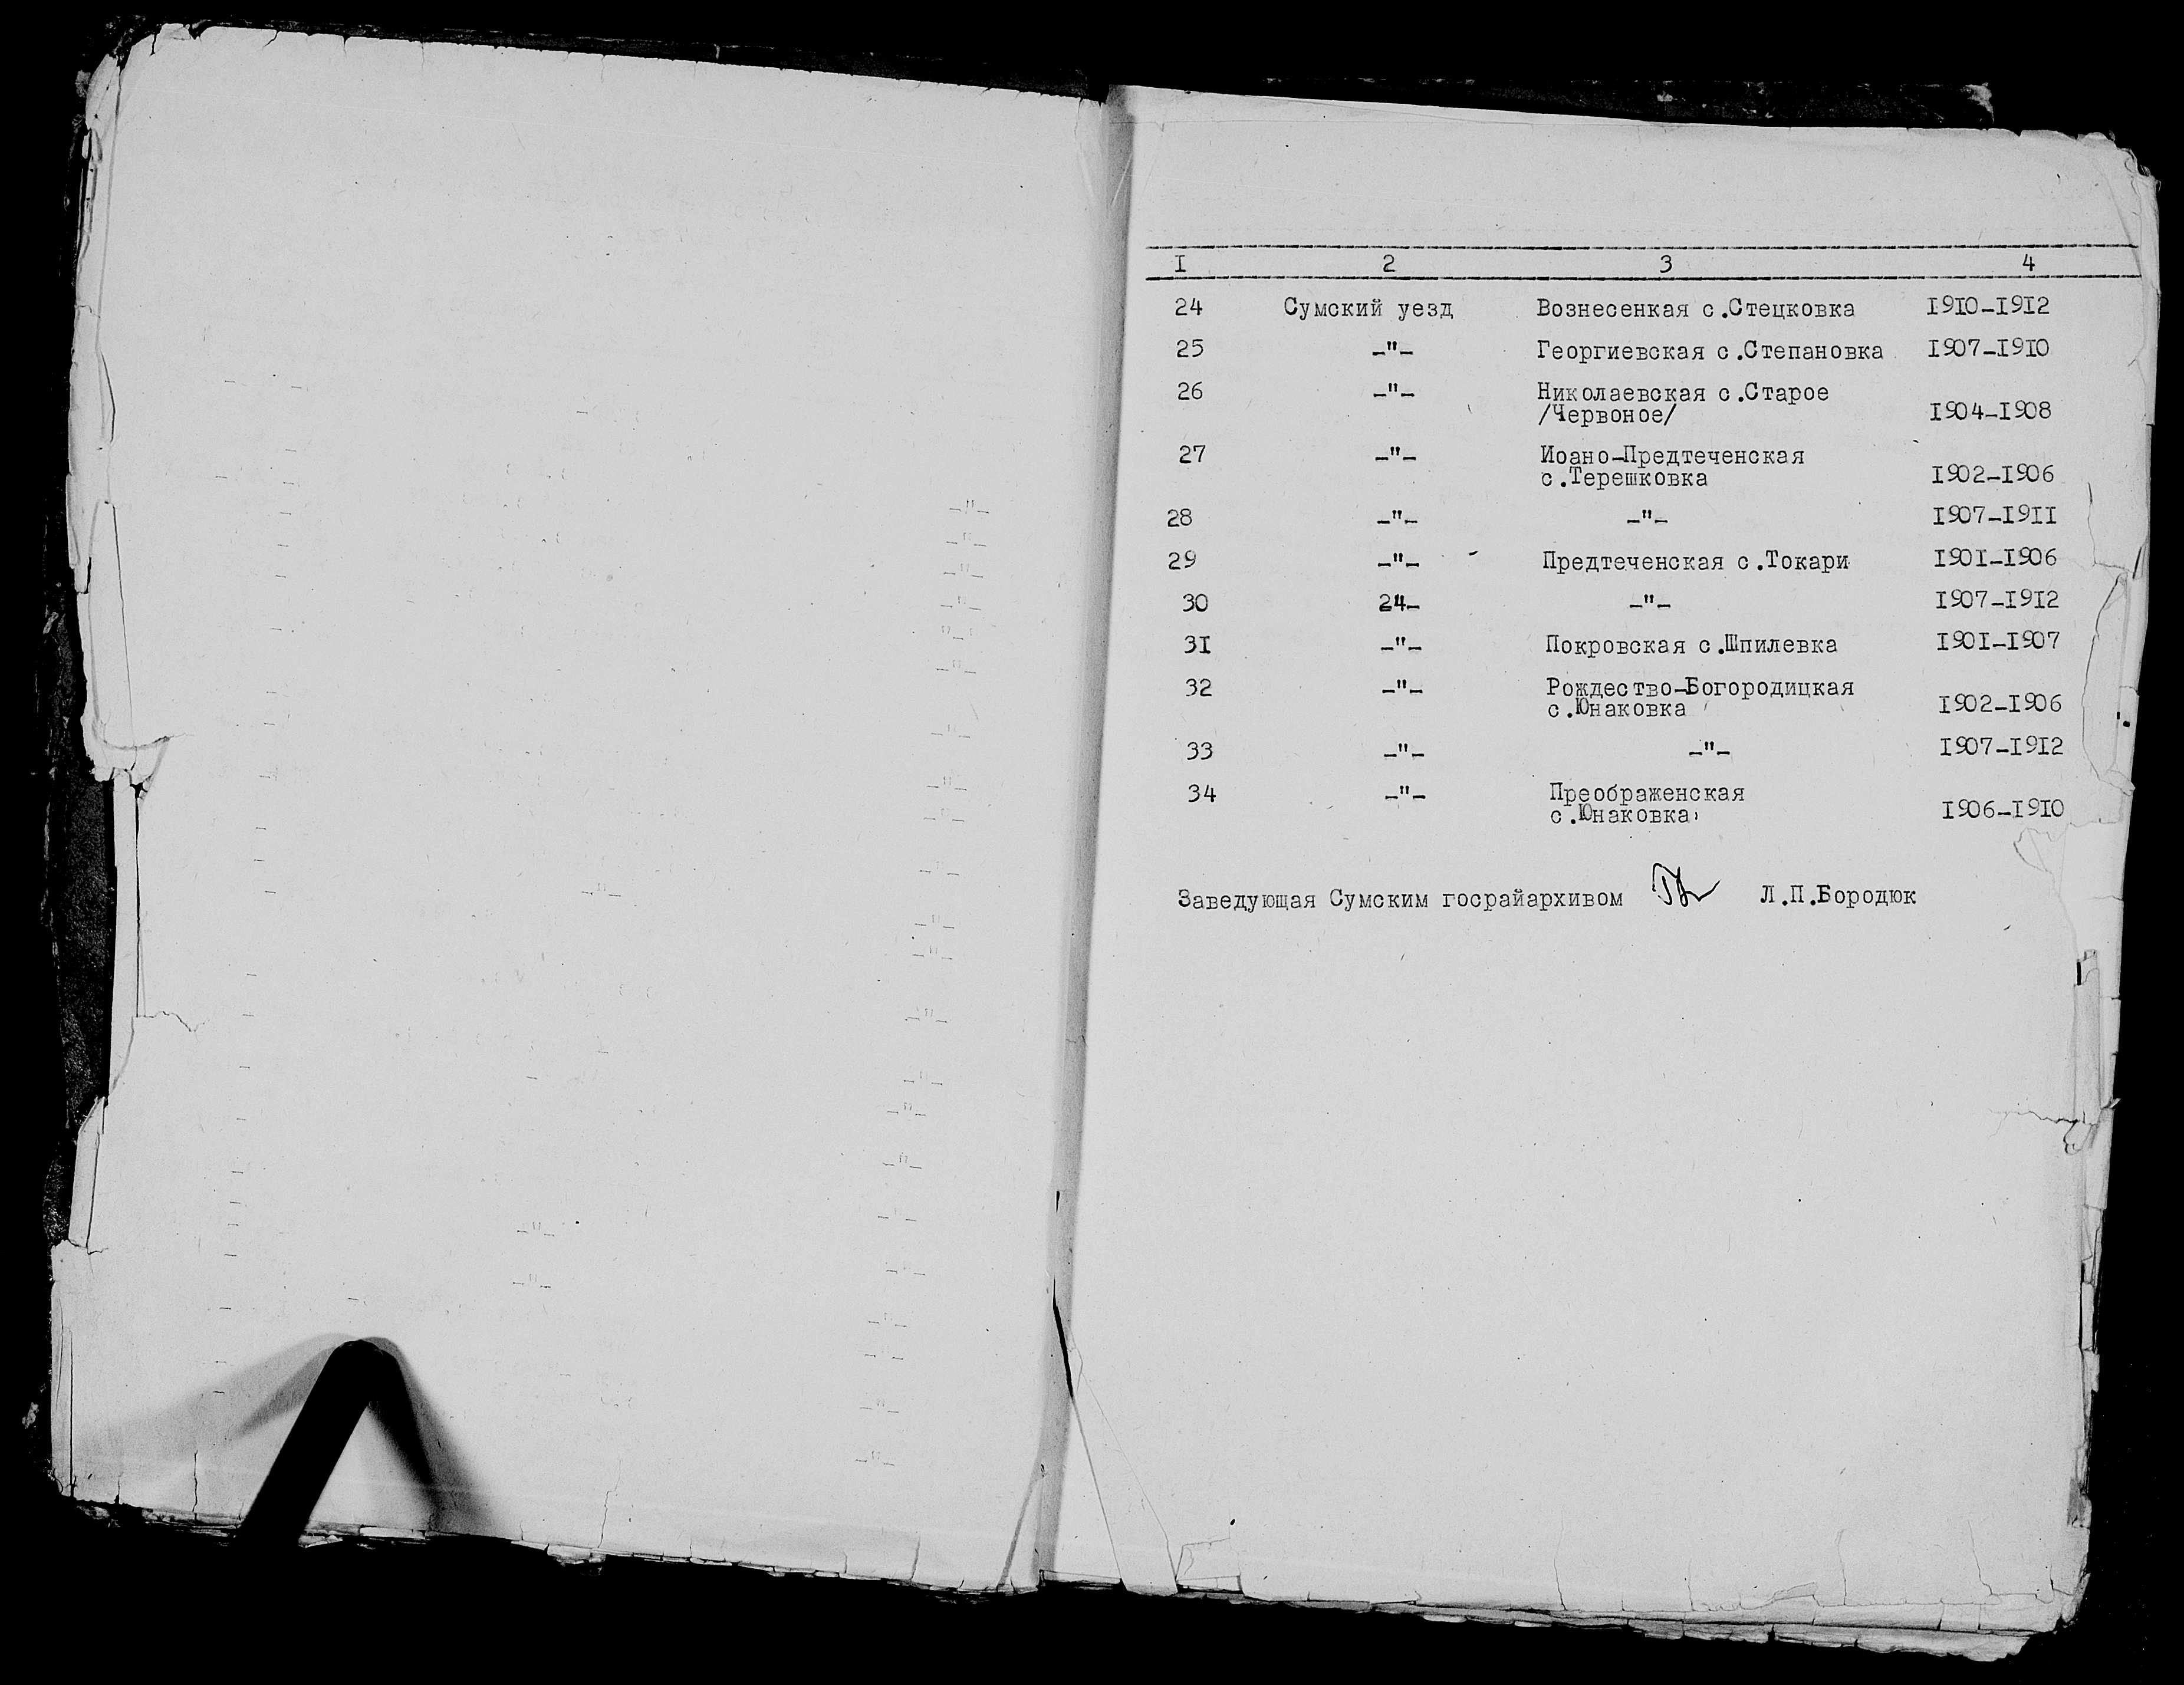 I 2 3 4
24 Сумский уезд Вознесенкая с.Стецковка I9I0-I9I2
25 -"- Георгиевская с.Степановка I907-I9I0
26 -"- Николаевская с.Старое
/Червоное/ I904-I908
27 -"- Иоано-Предтеченская
с.Терешковка I902-I906
28 -"- -"- I907-I9II
29 -"- Предтеченская с.Токари I90I-I906
30 24- -"- I907-I9I2
3I -"- Покровская с.Шпилевка I90I-I907
32 -"- Рождество-Богородицкая
с.Юнаковка I902-I906
33 -"- -"- I907-I9I2
34 -"- Преображенская
с.Юнаковка I906-I9I0
Заведующая Сумским госрайархивом Л.П.Бородюк